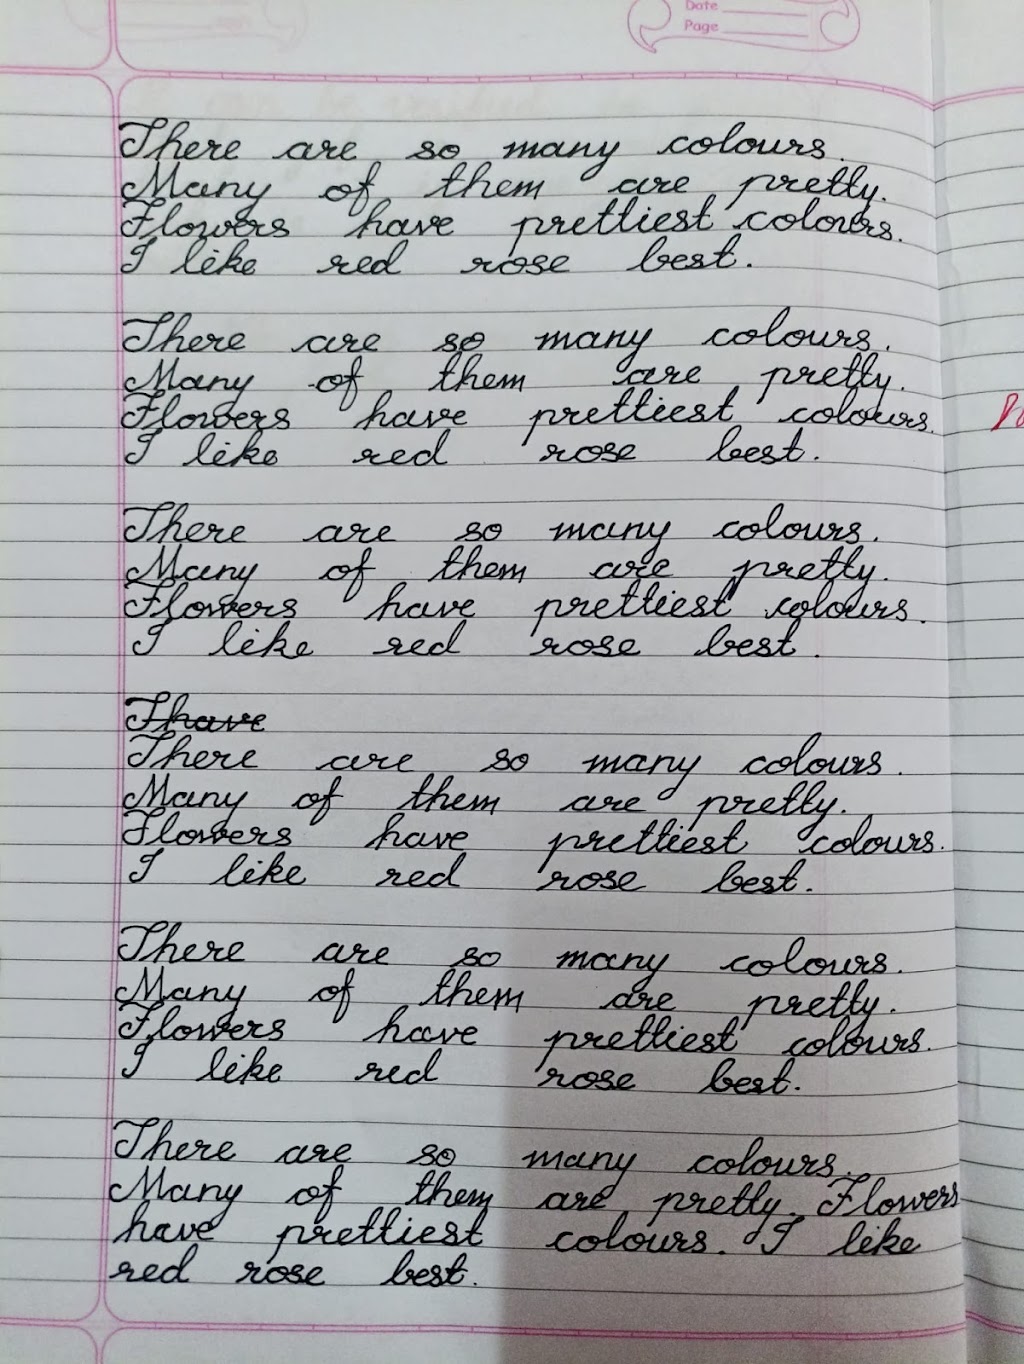 Date
Page
There are so many colours.
Many of them are pretty.
Flowers have prettiest colours.
I like red rose best.
There are so many colours.
Many of them are pretty.
Flowers have prettiest colours.
I like red rose best.
There are so many colours.
Many of them are pretty.
Flowers have prettiest colours.
I like red rose best.
I have
There are so many colours.
Many of them are pretty.
Flowers have prettiest colours.
I like red rose best.
There are so many colours.
Many of them are pretty.
Flowers have prettiest colours.
I like red rose best.
There are so many colours.
Many of them are pretty. Flowers
have prettiest colours. I like
red rose best.